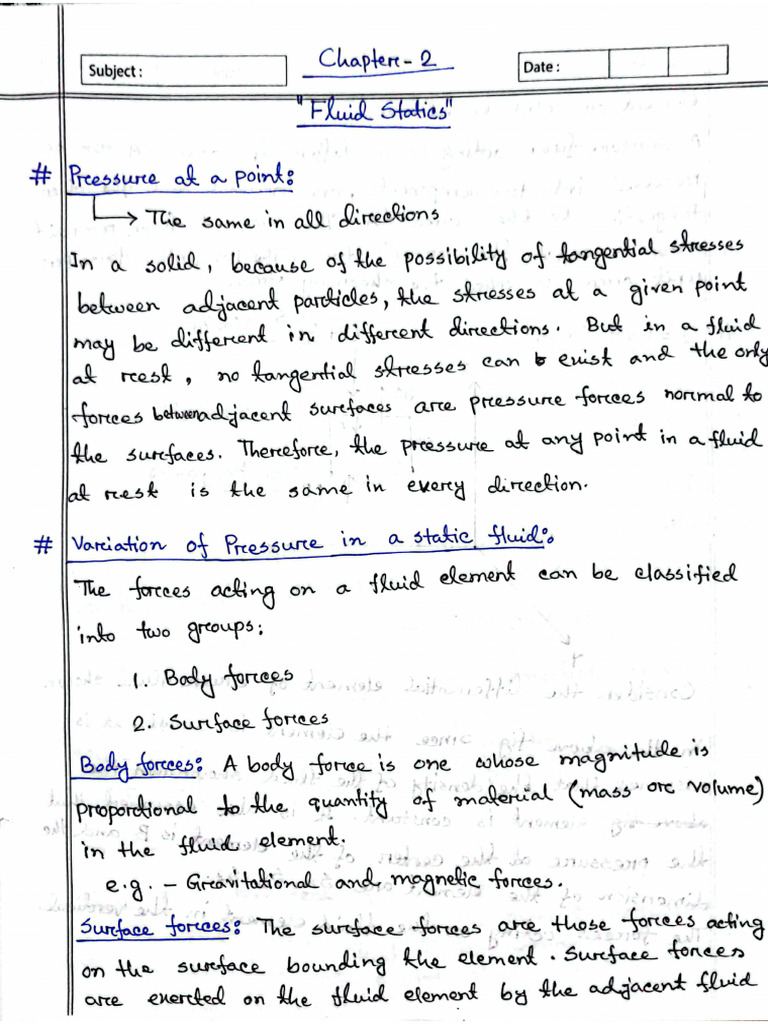 Subject :
Chapter - 2
Date :
"Fluid Statics"
# Pressure at a point:
→ The same in all directions
In a solid, because of the possibility of tangential stresses
between adjacent particles, the stresses at a given point
may be different in different directions. But in a fluid
at rest, no tangential stresses can exist and the only
forces between adjacent surfaces are pressure forces normal to
the surfaces. Therefore, the pressure at any point in a fluid
at rest is the same in every direction.
# Variation of Pressure in a static fluid:
The forces acting on a fluid element can be classified
into two groups:
1. Body forces
2. Surface forces
Body forces: A body force is one whose magnitude is
proportional to the quantity of material (mass or volume)
in the fluid element.
e.g. - Gravitational and magnetic forces.
Surface forces: The surface forces are those forces acting
on the surface bounding the element. Surface forces
are exerted on the fluid element by the adjacent fluid